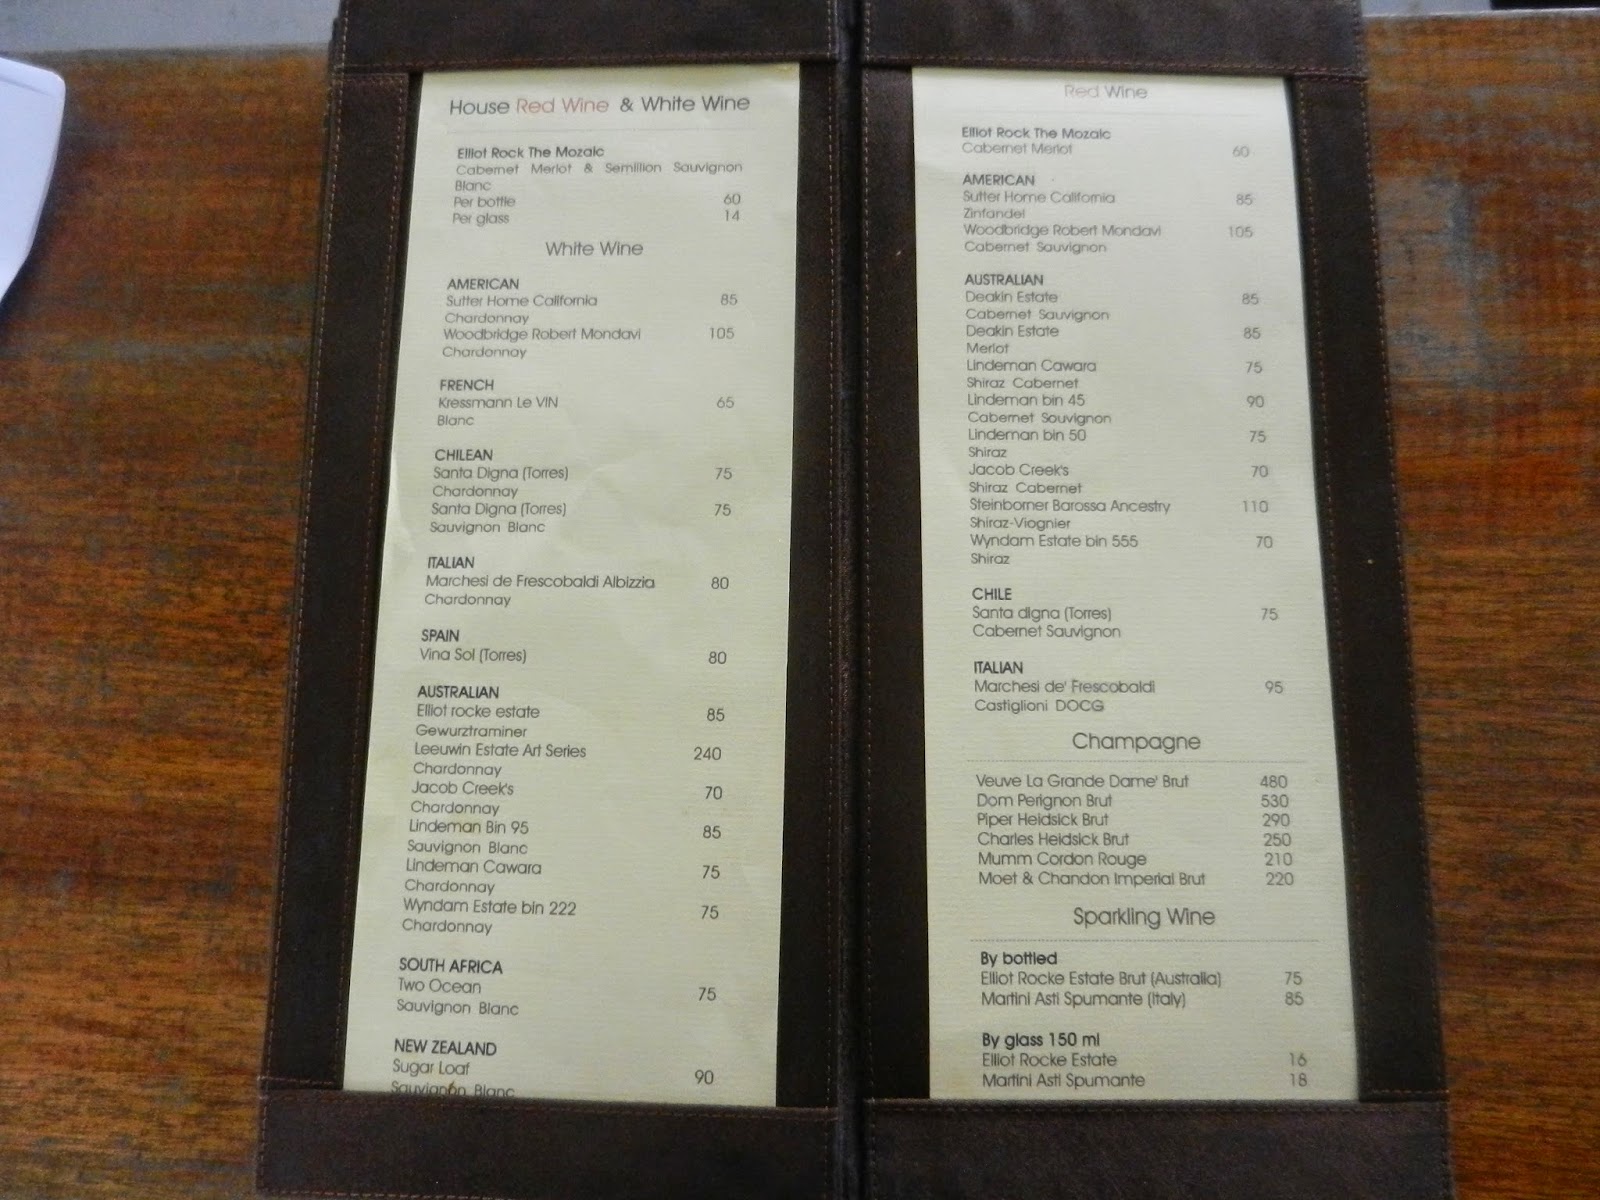 House Red Wine & White Wine
Elliot Rock The Mozaic
Cabernet Merlot & Semillion Sauvignon
Blanc
Per bottle 60
Per glass 14
White Wine
AMERICAN
Sutter Home California 85
Chardonnay
Woodbridge Robert Mondavi 105
Chardonnay
FRENCH
Kressmann Le VIN 65
Blanc
CHILEAN
Santa Digna (Torres) 75
Chardonnay
Santa Digna (Torres) 75
Sauvignon Blanc
ITALIAN
Marchesi de Frescobaldi Albizzia 80
Chardonnay
SPAIN
Vina Sol (Torres) 80
AUSTRALIAN
Elliot rocke estate 85
Gewurztraminer
Leeuwin Estate Art Series 240
Chardonnay
Jacob Creek's 70
Chardonnay
Lindeman Bin 95 85
Sauvignon Blanc
Lindeman Cawara 75
Chardonnay
Wyndam Estate bin 222 75
Chardonnay
SOUTH AFRICA
Two Ocean 75
Sauvignon Blanc
NEW ZEALAND
Sugar Loaf 90
Sauvignon Blanc
Red Wine
Elliot Rock The Mozaic
Cabernet Merlot 60
AMERICAN
Sutter Home California 85
Zinfandel
Woodbridge Robert Mondavi 105
Cabernet Sauvignon
AUSTRALIAN
Deakin Estate 85
Cabernet Sauvignon
Deakin Estate 85
Merlot
Lindeman Cawara 75
Shiraz Cabernet
Lindeman bin 45 90
Cabernet Souvignon
Lindeman bin 50 75
Shiraz
Jacob Creek's 70
Shiraz Cabernet
Steinborner Barossa Ancestry 110
Shiraz-Viognier
Wyndam Estate bin 555 70
Shiraz
CHILE
Santa digna (Torres) 75
Cabernet Sauvignon
ITALIAN
Marchesi de' Frescobaldi 95
Castiglioni DOCG
Champagne
Veuve La Grande Dame' Brut 480
Dom Perignon Brut 530
Piper Heidsick Brut 290
Charles Heidsick Brut 250
Mumm Cordon Rouge 210
Moet & Chandon Imperial Brut 220
Sparkling Wine
By bottled
Elliot Rocke Estate Brut (Australia) 75
Martini Asti Spumante (Italy) 85
By glass 150 ml
Elliot Rocke Estate 16
Martini Asti Spumante 18